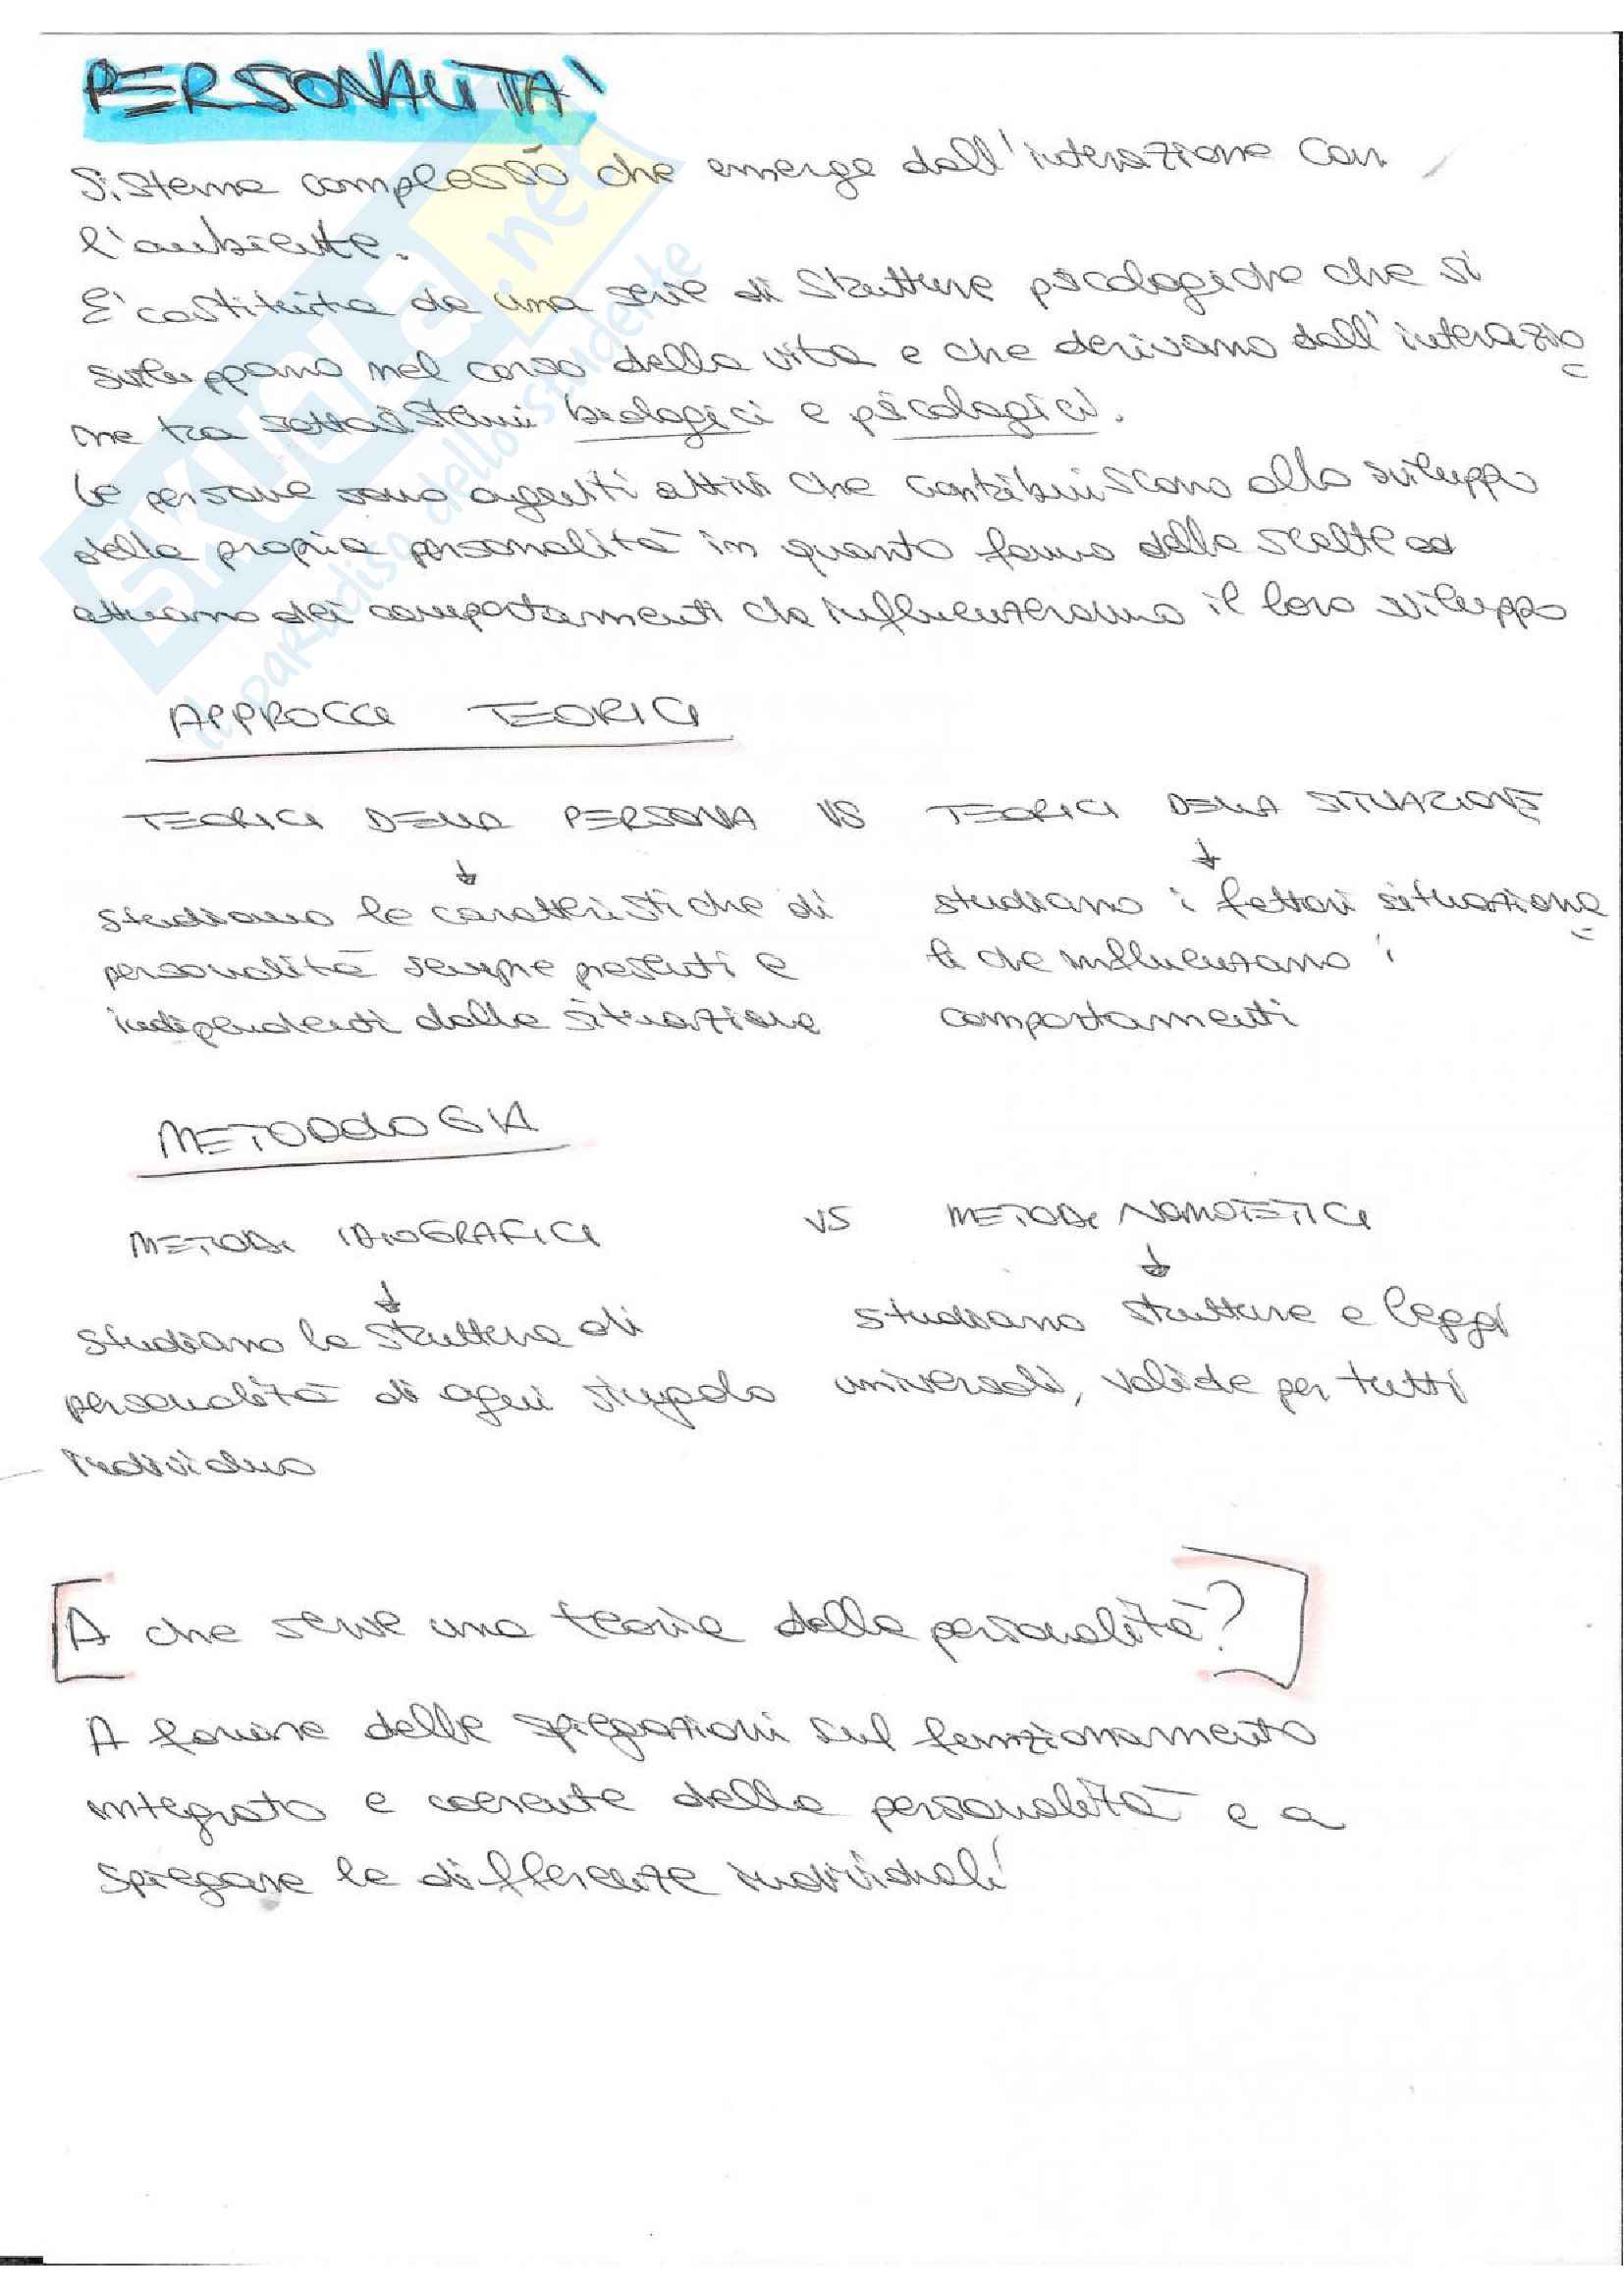 PERSONALITÀ
Sistema complesso che emerge dall'interazione con
l'ambiente.
E' costituita da una serie di strutture psicologiche che si
sviluppano nel corso della vita e che derivano dall'interazio
ne tra sottosistemi biologici e psicologici.
Le persone sono agenti attivi che contribuiscono allo sviluppo
della propria personalità in quanto fanno delle scelte ed
attuano dei comportamenti che influenzeranno il loro sviluppo
APPROCCI TEORICI
TEORICI DELLA PERSONA VS TEORICI DELLA SITUAZIONE
studiano le caratteristiche di
personalità sempre presenti e
indipendenti dalla situazione
studiano i fattori situaziona
li che influenzano i
comportamenti
METODOLOGIA
METODI IDIOGRAFICI VS METODI NOMOTETICI
studiano la struttura di
personalità di ogni singolo
individuo
studiano strutture e leggi
universali, valide per tutti
A che serve una teoria della personalità?
A fornire delle spiegazioni sul funzionamento
integrato e coerente della personalità e a
spiegare le differenze individuali
SKUOLA.net
il paradiso dello studente